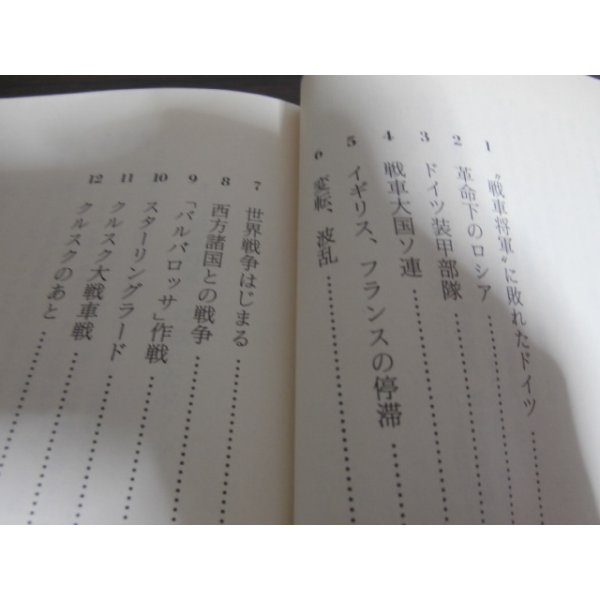 1 "戦車将軍"に敗れたドイツ……………
2 革命下のロシア……………
3 ドイツ装甲部隊……………
4 戦車大国ソ連……………
5 イギリス、フランスの停滞……………
6 変転、波乱……………
7 世界戦争はじまる……………
8 西方諸国との戦争……………
9 「バルバロッサ」作戦……………
10 スターリングラード……………
11 クルスク大戦車戦……………
12 クルスクのあと……………